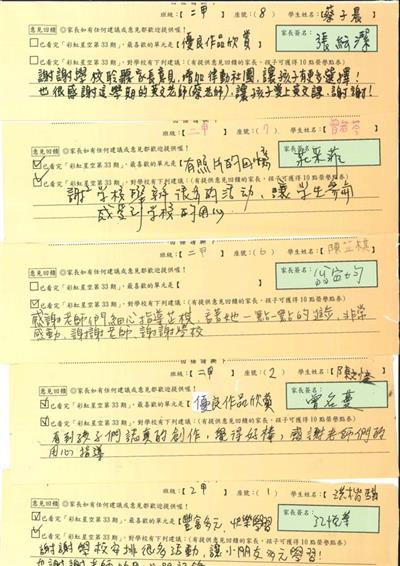 班級：【二甲】 座號：(8) 學生姓名：【蔡子晨】
意見回饋 ◎家長如有任何建議或意見都歡迎提供喔！ 家長簽名：
□已看完「彩虹星空第33期」，最喜歡的單元是【優良作品欣賞】
□已看完「彩虹星空第33期」，對學校有下列建議：(有提供意見回饋的家長，孩子可獲得10點榮譽點券)
謝謝學校聆聽家長意見，增加律動社團，讓孩子有更多選擇！
也很感謝這學期的英文老師(蔡老師)，讓孩子愛上英文課，謝謝！
班級：【二甲】 座號：(7) 學生姓名：【曾

意見回饋 ◎家長如有任何建議或意見都歡迎提供喔！ 家長簽名：
已看完「彩虹星空第33期」，最喜歡的單元是【有照片的回憶】
已看完「彩虹星空第33期」，對學校有下列建議：(有提供意見回饋的家長，孩子可獲得10點榮譽點券)
謝學校舉辦很多的活動，讓學生參與
感受到學校的用心
班級：【二甲】 座號：(6) 學生姓名：【陳芷
意見回饋 ◎家長如有任何建議或意見都歡迎提供喔！ 家長簽名：
□已看完「彩虹星空第33期」，最喜歡的單元是【 】
□已看完「彩虹星空第33期」，對學校有下列建議：(有提供意見回饋的家長，孩子可獲得10點榮譽點券)
感謝老師們細心指導芷 看她一點一點的進步，非常
感動，謝謝老師，謝謝學校
班級：【二甲】 座號：(2) 學生姓名：【陳
意見回饋 ◎家長如有任何建議或意見都歡迎提供喔！ 家長簽名：
已看完「彩虹星空第33期」，最喜歡的單元是【優良作品欣賞】
已看完「彩虹星空第33期」，對學校有下列建議：(有提供意見回饋的家長，孩子可獲得10點榮譽點券)
看到孩子們認真的創作，覺得好棒，感謝老師們的
用心指導
班級：【2甲】 座號：(1) 學生姓名：【洪
意見回饋 ◎家長如有任何建議或意見都歡迎提供喔！ 家長簽名：
已看完「彩虹星空第33期」，最喜歡的單元是【豐富多元 快樂學習】
已看完「彩虹星空第33期」，對學校有下列建議：(有提供意見回饋的家長，孩子可獲得10點榮譽點券)
謝謝學校安排很多活動，讓小朋友多元學習！
也謝謝老師